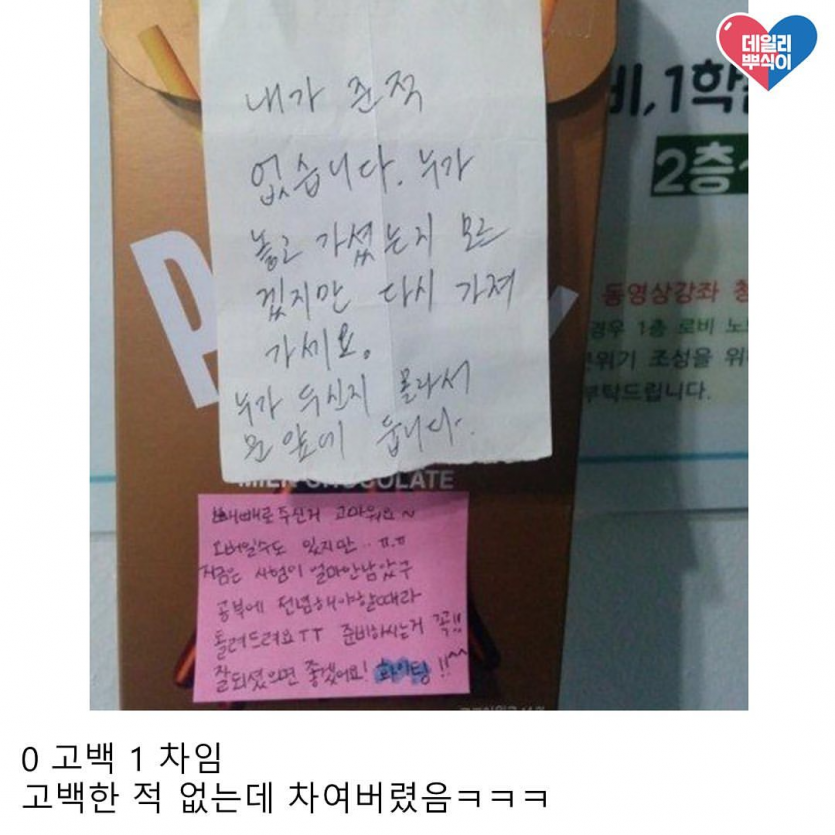 데일리
뿌식이
내가 준적
없습니다. 누가
놓고 가셨는지 모르
겠지만 다시 가져
가세요.
누가 두신지 몰라서
문 앞에 둡니다.
비,1학
2층
동영상강좌 청
경우 1층 로비 노
분위기 조성을 위
부탁드립니다.
P
y
MILK CHOCOLATE
빼빼로 주신거 고마워요~
오버일수도 있지만.. ㅠ.ㅠ
지금은 시험이 얼마안남았구
공부에 전념해야할때라
돌려드려요TT 준비하시는거 꼭!!
잘되셨으면 좋겠어요! 화이팅!!^^
0 고백 1 차임
고백한 적 없는데 차여버렸음ㅋㅋㅋ